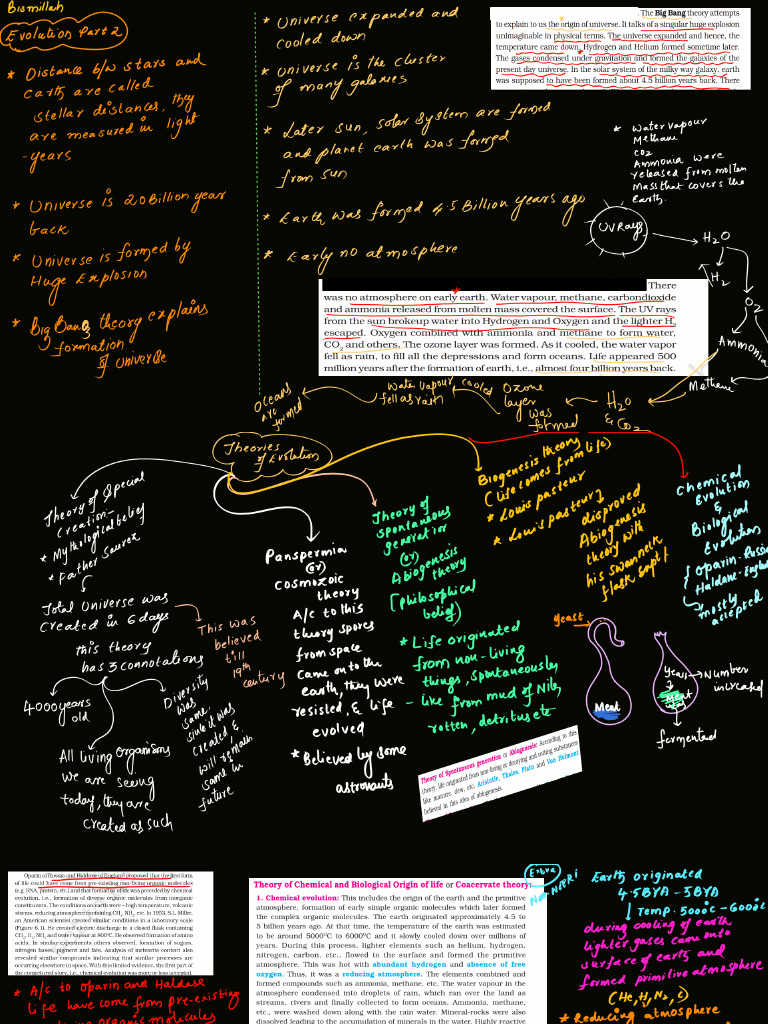 Bismillah
Evolution Part 2
* Distance b/w stars and
earth are called
stellar distances, they
are measured in light
-years
* Universe is 20 Billion year
back
* Universe is formed by
Huge Explosion
* Big Bang theory explains
formation
of Universe
* Universe expanded and
cooled down
* Universe is the cluster
of many galaxies
* Later sun, solar system are formed
and planet earth was formed
from sun
* Earth was formed 4.5 Billion years ago
* Early no atmosphere
The Big Bang theory attempts
to explain to us the origin of universe. It talks of a singular huge explosion
unimaginable in physical terms. The universe expanded and hence, the
temperature came down. Hydrogen and Helium formed sometime later.
The gases condensed under gravitation and formed the galaxies of the
present day universe. In the solar system of the milky way galaxy, earth
was supposed to have been formed about 4.5 billion years back. There
* Water vapour
Methane
CO2
Ammonia were
released from molten
Mass that covers the
Earth.
UV Rays
H2O
H2
O2
Ammonia
Methane
There
was no atmosphere on early earth. Water vapour, methane, carbondioxide
and ammonia released from molten mass covered the surface. The UV rays
from the sun brokeup water into Hydrogen and Oxygen and the lighter H2
escaped. Oxygen combined with ammonia and methane to form water,
CO2 and others. The ozone layer was formed. As it cooled, the water vapor
fell as rain, to fill all the depressions and form oceans. Life appeared 500
million years after the formation of earth, i.e., almost four billion years back.
H2O
& CO2
Ozone
layer
was
formed
cooled
Water vapour
fell as rain
Oceans
are
formed
Theories
of Evolution
Theory of Special
Creation-
* Mythological belief
* Father Saurez
Total Universe was
created in 6 days
this theory
has 3 connotations
This was
believed
till
19th
century
4000 years
old
All living organisms
we are seeing
today, they are
created as such
Diversity
was
same
since it was
created &
will remain
same in
future
Panspermia
(or)
Cosmozoic
theory
A/c to this
theory spores
from space
came on to the
earth, they were
resisted, & life
evolved
* Believed by some
astronauts
Theory of
spontaneous
generation
(or)
Abiogenesis
theory
[philosophical
belief]
* Life originated
from non-living
things, spontaneously
- like from mud of Nile,
rotten, detritus etc
Theory of Spontaneous generation or Abiogenesis: According to this
theory, life originated from non-living or decaying and rotting substances
like manure, dew, etc. Aristotle, Thales, Plato and Von Helmont
believed in this idea of abiogenesis.
Biogenesis theory
(Life comes from life)
* Louis pasteur
* Louis pasteur
disproved
Abiogenesis
theory with
his swanneck
flask Expt/
Chemical
Evolution
&
Biological
Evolution
Oparin-Russia
Haldane-England
mostly
accepted
yeast
Meat
yeast
Meat
Number
increased
fermented
Oparin of Russia and Haldane of England proposed that the first form
of life could have come from pre-existing non-living organic molecules
(e.g. RNA, protein, etc.) and that formation of life was preceded by chemical
evolution, i.e., formation of diverse organic molecules from inorganic
constituents. The conditions on earth were – high temperature, volcanic
storms, reducing atmosphere containing CH4, NH3, etc. In 1953, S.L. Miller,
an American scientist created similar conditions in a laboratory scale
(Figure 6.1). He created electric discharge in a closed flask containing
CH4, H2, NH3 and water vapour at 800°C. He observed formation of amino
acids. In similar experiments others observed, formation of sugars,
nitrogen bases, pigment and fats. Analysis of meteorite content also
revealed similar compounds indicating that similar processes are
occurring elsewhere in space. With this limited evidence, the first part of
the conjectured story, i.e., chemical evolution was more or less accepted.
* A/c to oparin and Haldane
life have come from pre-existing
organic molecules
Theory of Chemical and Biological Origin of life or Coacervate theory:
1. Chemical evolution: This includes the origin of the earth and the primitive
atmosphere, formation of early simple organic molecules which later formed
the complex organic molecules. The earth originated approximately 4.5 to
5 billion years ago. At that time, the temperature of the earth was estimated
to be around 5000°C to 6000°C and it slowly cooled down over millions of
years. During this process, lighter elements such as helium, hydrogen,
nitrogen, carbon. etc., flowed to the surface and formed the primitive
atmosphere. This was hot with abundant hydrogen and absence of free
oxygen. Thus, it was a reducing atmosphere. The elements combined and
formed compounds such as ammonia, methane, etc. The water vapour in the
atmosphere condensed into droplets of rain, which ran over the land as
streams, rivers and finally collected to form oceans. Ammonia, methane
etc., were washed down along with the rain water. Mineral-rocks were also
dissolved leading to the accumulation of minerals in the water. Highly reactive
Extra
Earth originated
4.5BYA - 5BYA
Temp. 5000°C-6000°C
during cooling of earth
lighter gases came onto
surface of earth and
formed primitive atmosphere
(He, H2, N2, C)
* Reducing atmosphere